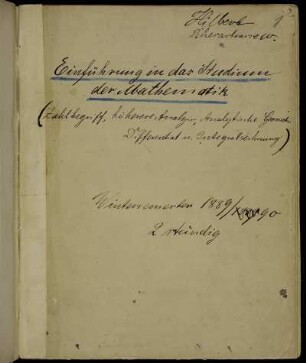 Hilbert
1
Einführung in das Studium
der Mathematik
(Zahlbegriff, höhere Analysis, Analytische Geometrie
Differential u. Integralrechnung)
Wintersemester 1889/90
2 stündig